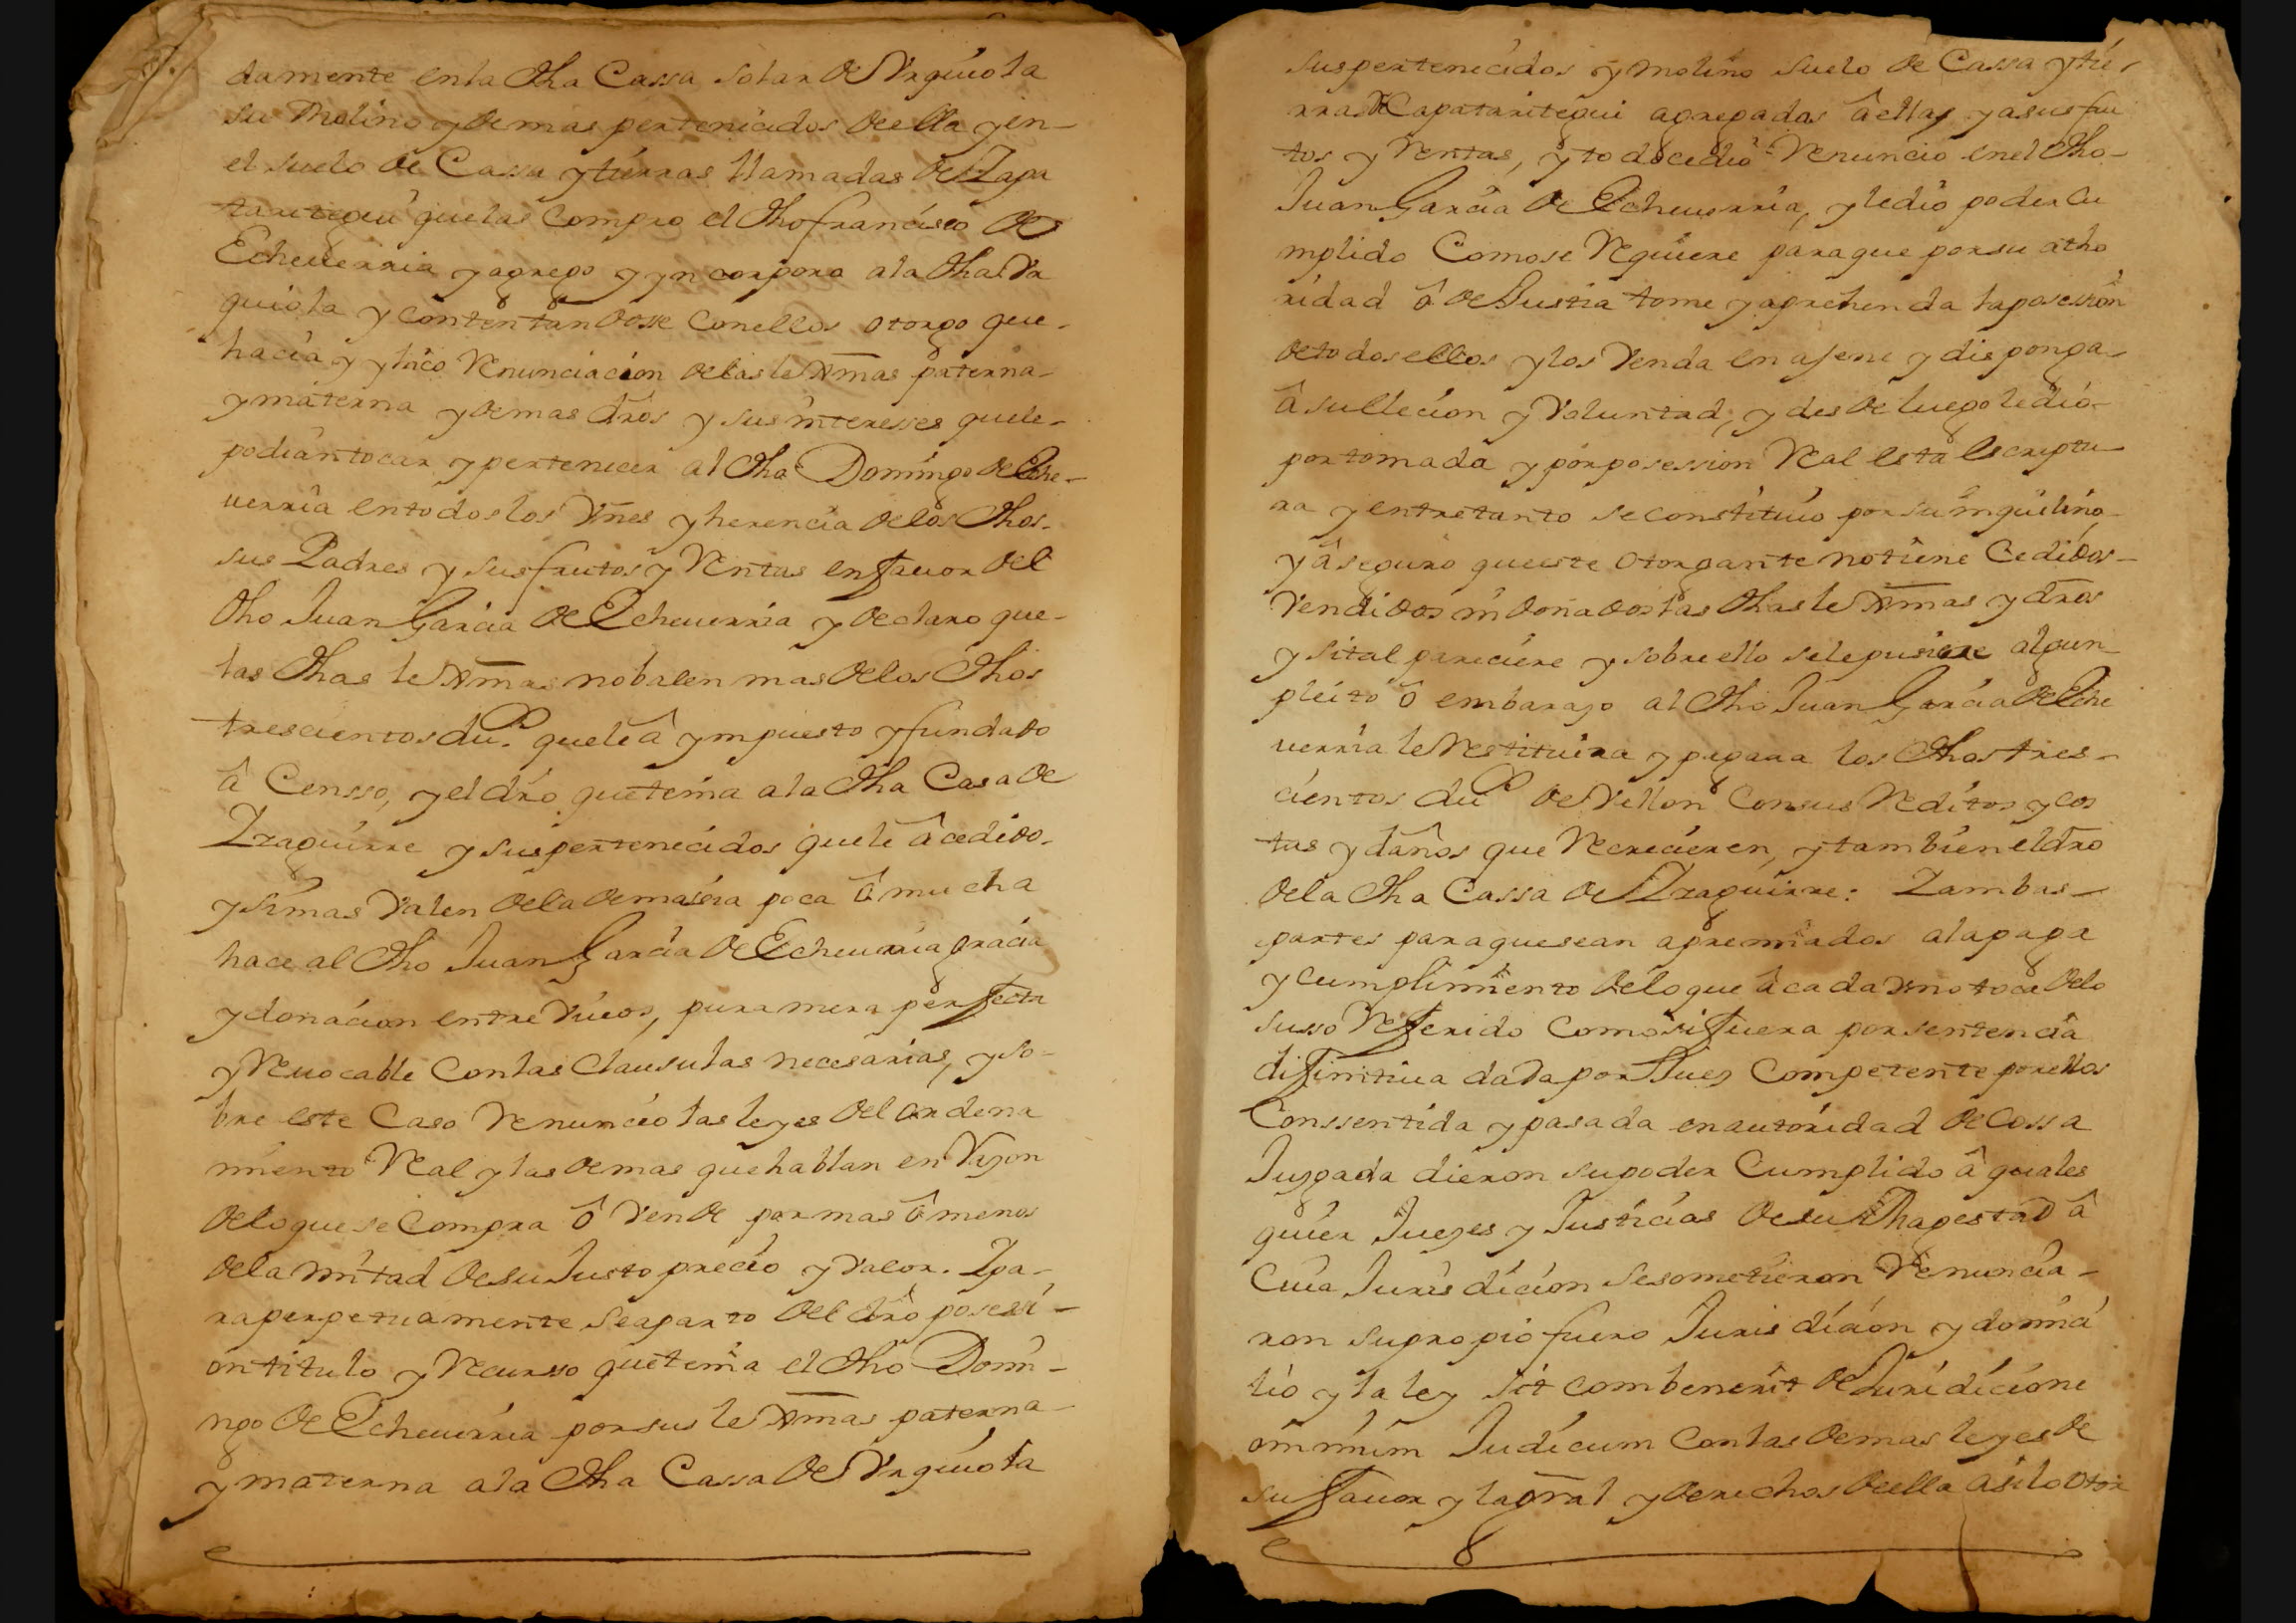 damente en la dha Cassa solar de Vrquiola
su Molino y demas pertenecidos de ella y en
el suelo de Cassa y tierras llamadas de Zapa
taritegui que las Compro el dho francisco de
Echeuerria y agrego y yncorporo a la dha Vr
quiola y contentandosse Conellos otorgo que
hacia y yhiço Renunciacion de las lexmas paterna
y materna y demas dr̃os y sus interesses que le
podian tocar y pertenecer al dho Domingo de Eche
uerria en todos los vnes y herencia de los dhos
sus Padres y sus frutos y Rentas en fauor del
dho Juan Garcia de Echeuerria y declaro que
las dhas lexmas no balen mas de los dhos
trescientos du.s que le â ympuesto y fundado
â Censso, y el dr̃o que tenia a la dha Casa de
Yraguirre y sus pertenecidos que le â cedido
y si mas valen de la demasia poca ô mucha
hace al dho Juan Garcia de Echeuerria gracia
y donacion entre viuos, pura mera perfecta
y Reuocable Con las Clausulas necesarias, y so
bre este Caso Renuncio las leyes del ordena
miento Real y las demas que hablan en Raçon
de lo que se Compra ô vende por mas ô menos
de la mitad de su Justo precio y valor. Y pa
ra perpetuamente se aparto del dr̃o posessi
on titulo y Recursso que tenia el dho Domi
ngo de Echeuerria por sus lexmas paterna
y materna a la dha Cassa de Vrquiola
sus pertenecidos y molino suelo de Cassa y tie
rras de Capataritegui agregadas â ellas y a sus fru
tos y Rentas, y todo cedio Renuncio en el dho
Juan Garcia de Echeuerria, y le dio poder Cu
mplido Como se Rquiere para que por su atho
ridad ô de Justia tome y aprehenda la posession
de todos ellos y los venda enajene y disponga
â su llecion y voluntad, y desde luego le dio
por tomada y por posession Real esta Escriptu
ra y entretanto se constituio por su inquilino
y âseguro que este otorgante no tiene Cedidos
vendidos ni donados las dhas lexmas y dr̃os
y si tal pareciere y sobre ello se le pusiere algun
pleito ô embaraço al dho Juan Garcia de Eche
uerria le Restituira y pagara los dhos tres
cientos du.s de Vellon Con sus Reditos y cos
tas y dãnos que Recrecieren, y tambien el dr̃o
de la dha Cassa de Yraguirre: Y ambas
partes para que sean apremiados a la paga
y cumplimiento de lo que â cada vno toca de lo
susso Referido Como si fuera por sentencia
difinitiua dada por Juez Competente por ellos
Conssentida y pasada en autoridad de Cossa
Juzgada dieron su poder Cumplido â quales
quier Juezes y Justicias de su Magestad â
Cuia Jurisdicion se sometieron Renuncia
ron su propio fuero Jurisdicion y domici
lio y la ley sit combenerit de Juridicione
omnium Judicum Con las demas leyes de
su fauor y la gr̃al y derechos de ella asi lo otor